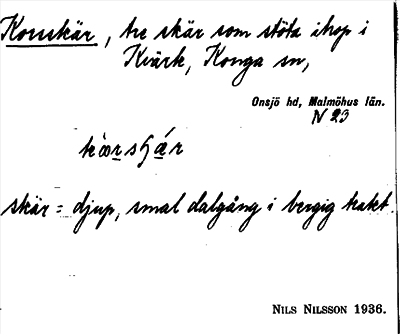 Korsskär, tre skär som stöta ihop i
Kvärk, Konga sn,
Onsjö hd, Malmöhus län.
N 23
skär = djup, smal dalgång i bergig trakt.
NILS NILSSON 1936.